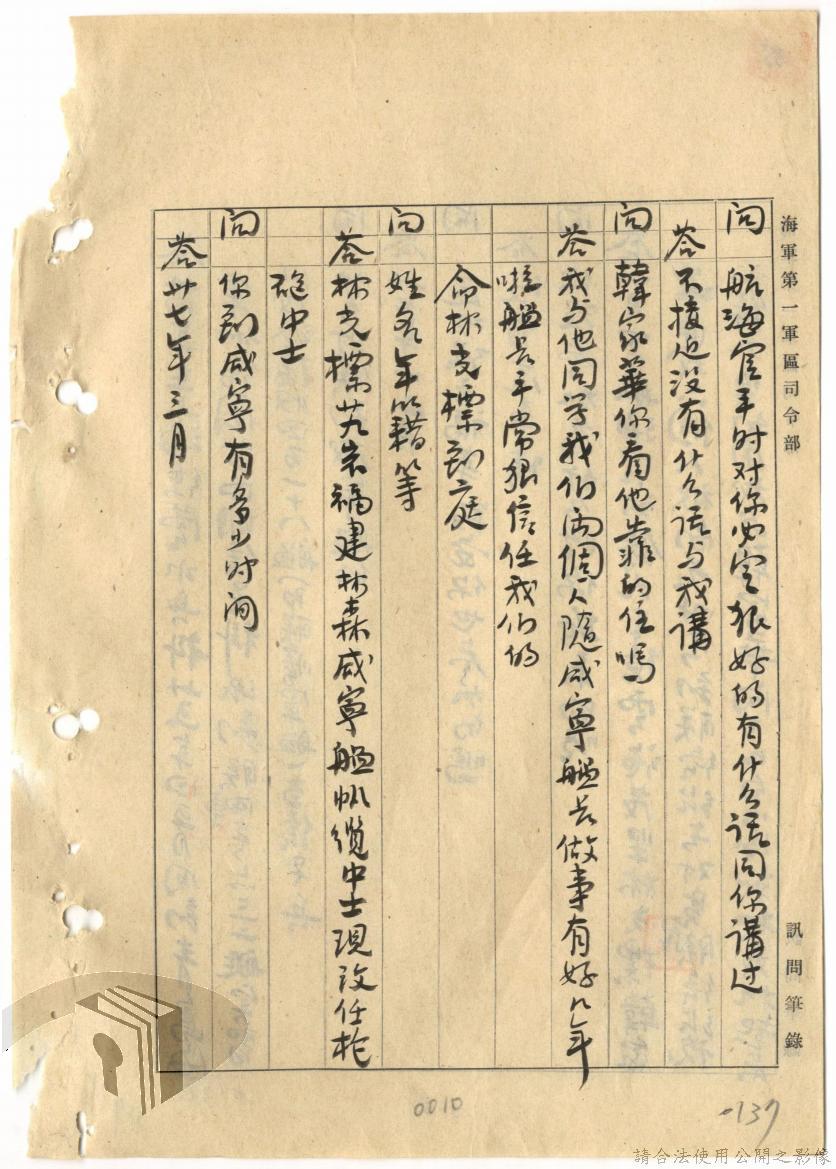 海軍第一軍區司令部 訊問筆錄
问 航海官平时对你必定狠好的有什么话同你講过
答 不接近没有什么话与我講
问 韓家華你看他靠的住嗎
答 我与他同学我们两個人隨咸寧艦长做事有好几年
啦艦长平常狠信任我们的
命林克標到庭
问 姓名年籍等
答 林克標廿九岁福建林森咸寧艦帆纜中士現改任枪
砲中士
问 你到咸寧有多少时间
答 卅七年三月
0010
137
請合法使用公開之影像